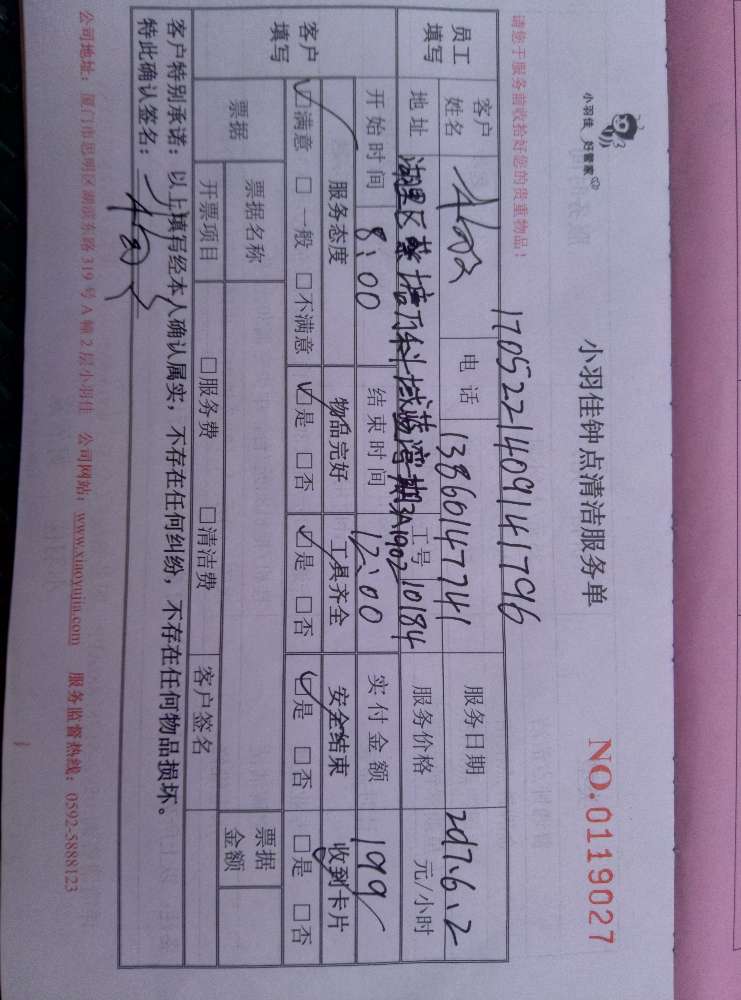 小羽佳 好管家
小羽佳钟点清洁服务单
NO. 0119027
请您于服务前收拾好您的贵重物品!
1705221409141796
员工填写 客户姓名 电话 13860147741 服务日期 2017.6.2
地址 湖里区 万科 3A1902 工号 10184 服务价格 元/小时
开始时间 8:00 结束时间 12:00 实付金额 199/
客户填写 服务态度 物品完好 工具齐全 安全结束 收到卡片
☑满意 □一般 □不满意 ☑是 □否 ☑是 □否 ☑是 □否 □是 □否
票据 票据名称 票据金额
开票项目 □服务费 □清洁费 客户签名
客户特别承诺:以上填写经本人确认属实,不存在任何纠纷,不存在任何物品损坏。
特此确认签名:
公司地址:厦门市思明区湖滨东路319号A幢2层小羽佳 公司网站:www.xiaoyujia.com 服务监督热线:0592-5888123